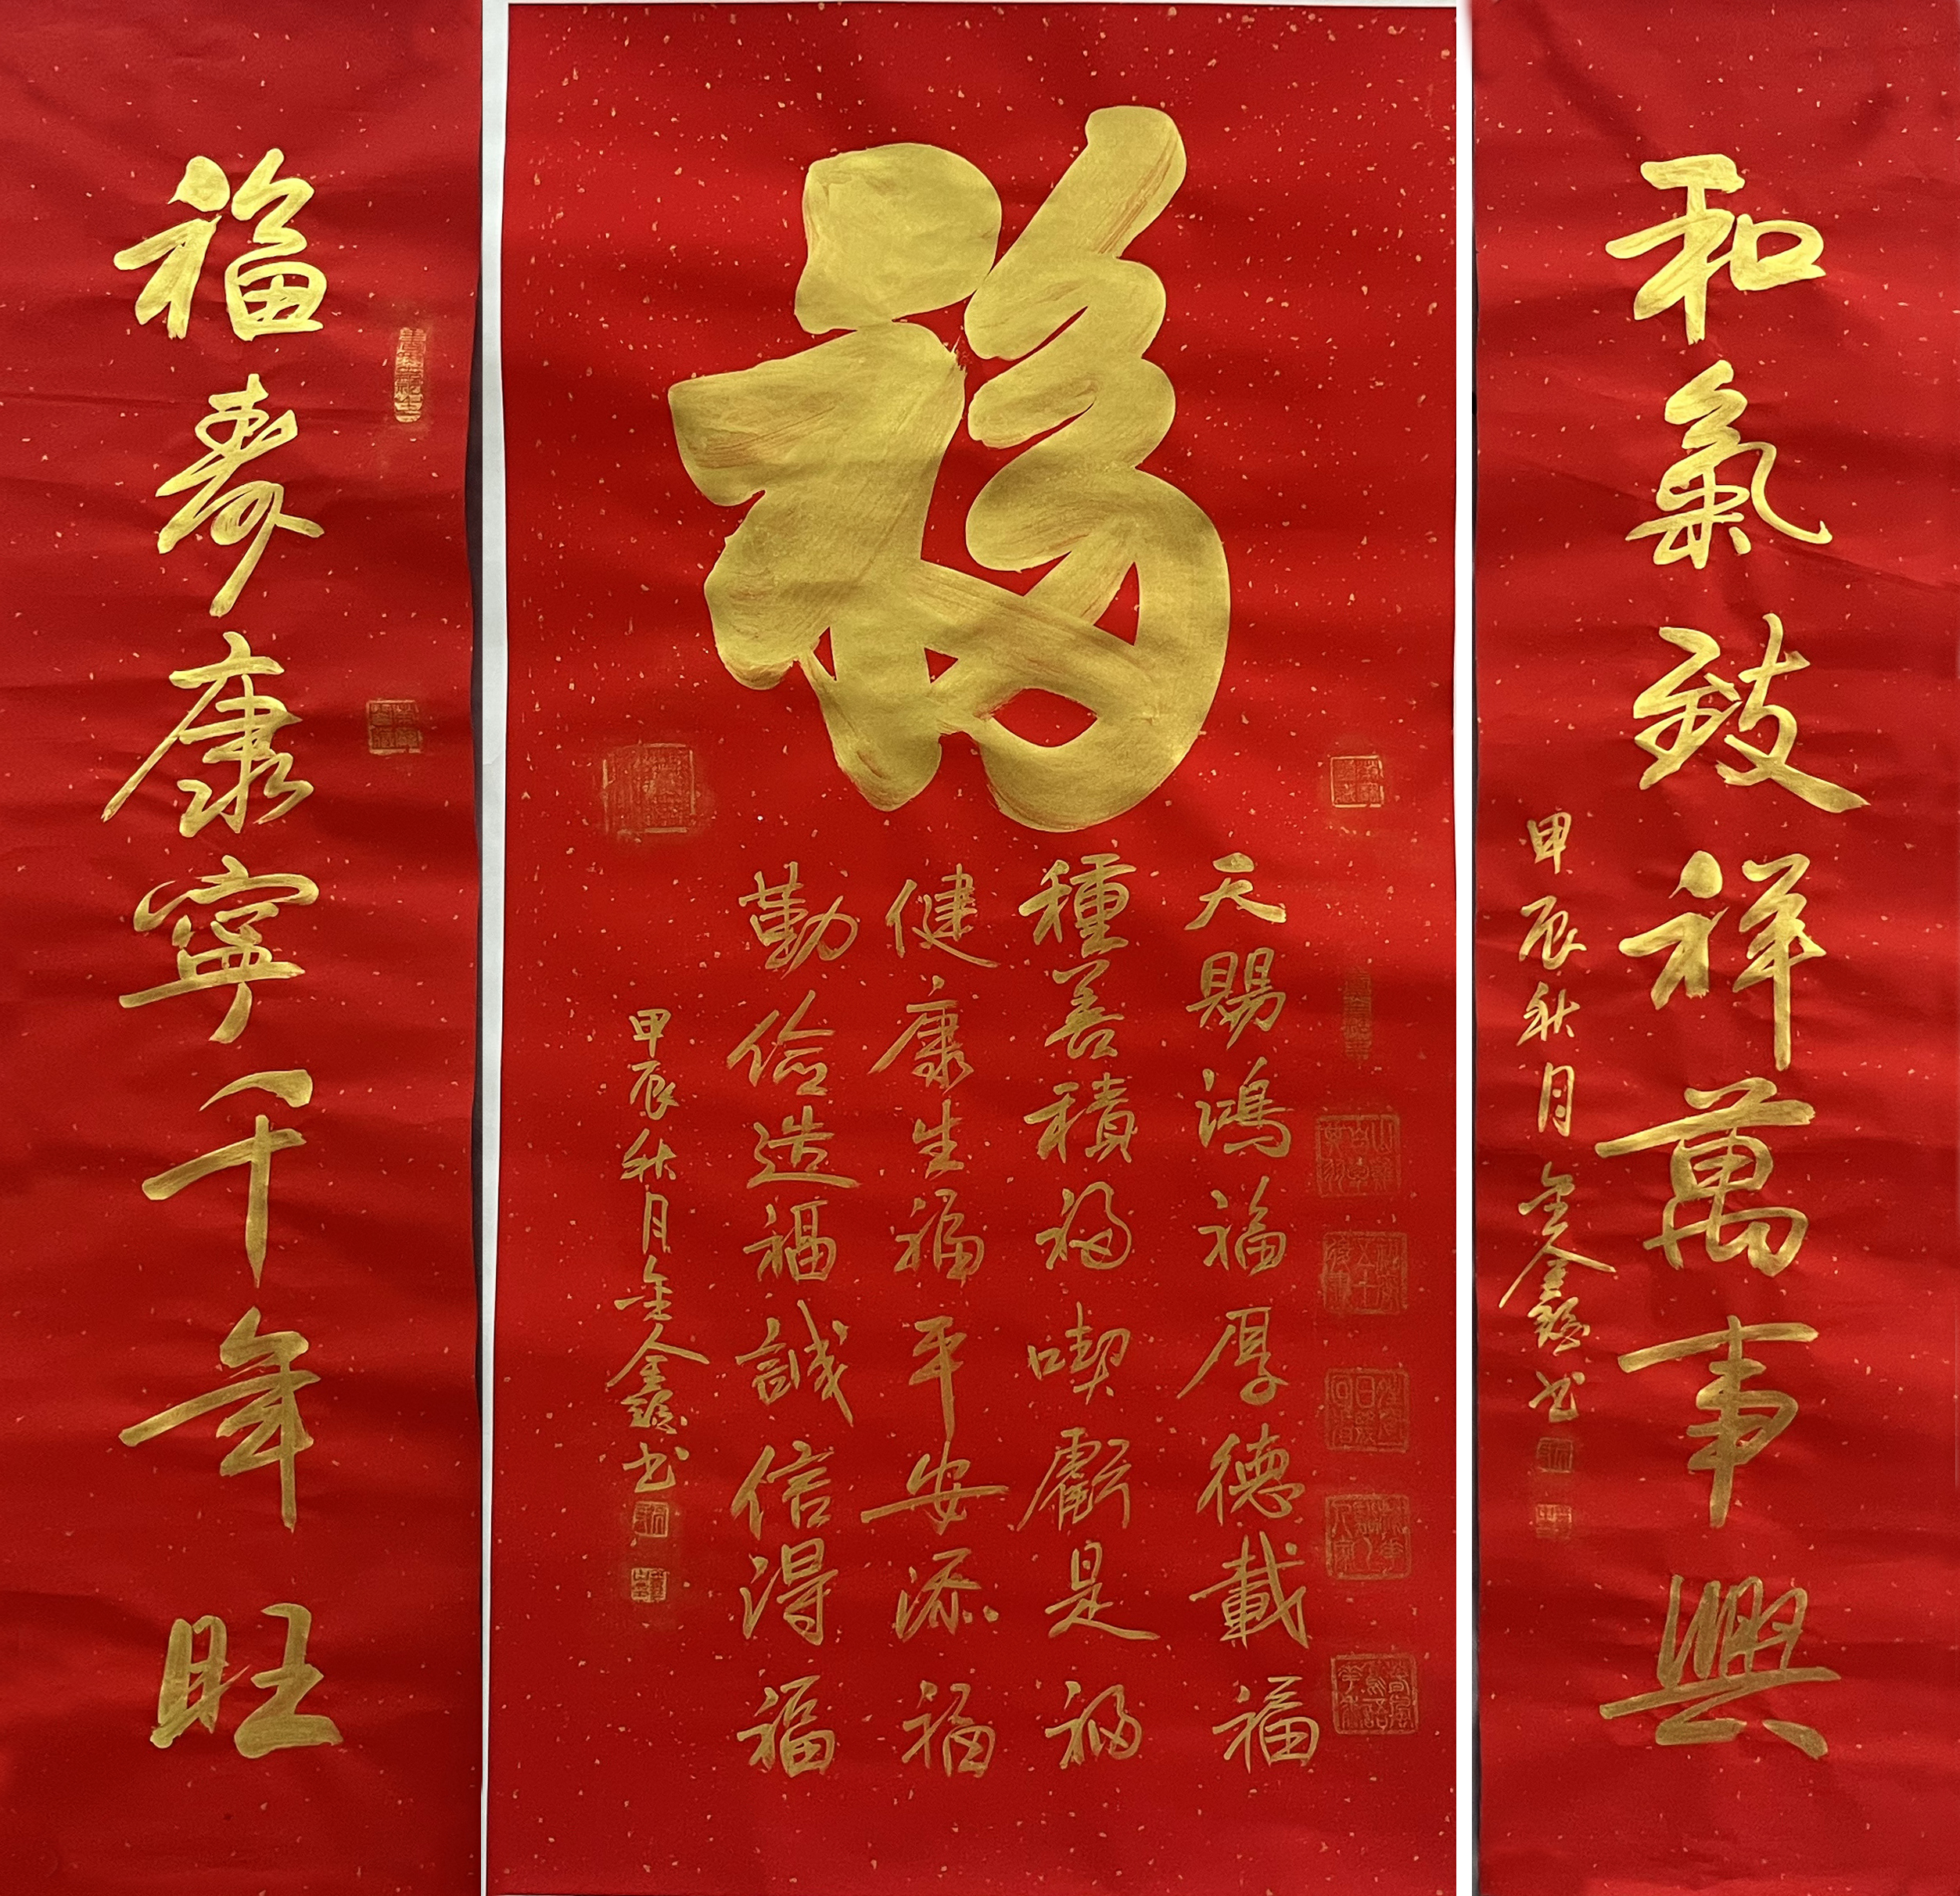 和氣致祥萬事興
甲辰秋月金鑫书
福
天賜鴻福厚德載福
種善積福喫虧是福
健康生福平安添福
勤儉造福誠信得福
甲辰秋月金鑫书
福壽康寧千年旺